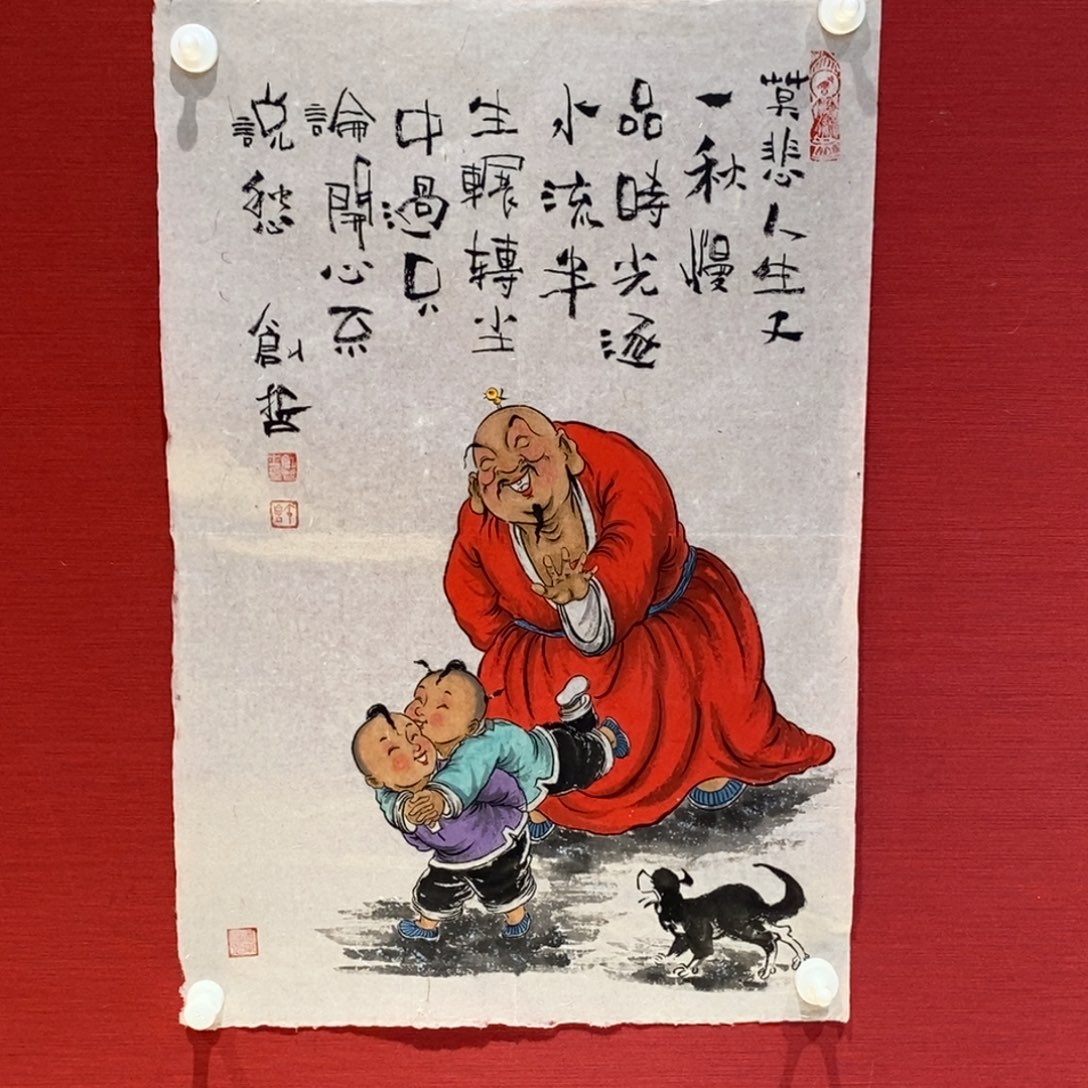 莫悲人生又
一秋慢
品時光逐
水流半
生輾轉尘
中過只
論開心不
説愁
創哲